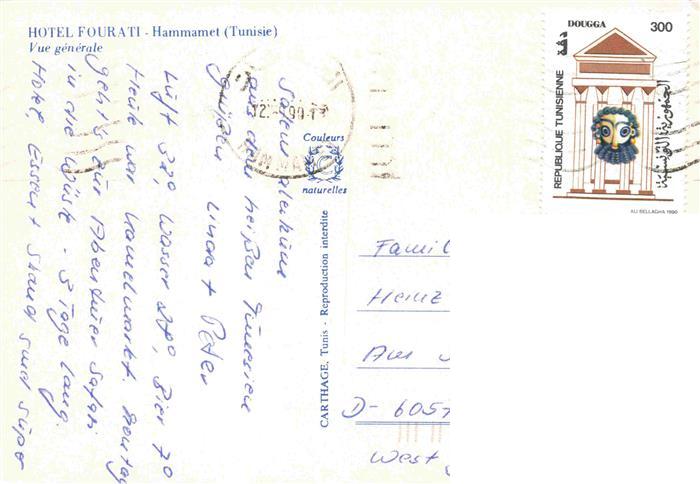 HOTEL FOURATI - Hammamet (Tunisie)
Vue générale
DOUGGA
300
دقة
REPUBLIQUE TUNISIENNE
الجمهورية التونسية
ALI BELLAGHA 1990
Couleurs
naturelles
CARTHAGE, Tunis - Reproduction interdite
aus dem heißen Tunesien
grüßen
Linda + Peter
Luft 32°, Wasser 22°, Bier 7°
Heute war Kamelmarkt. Montag
geht's zur Abenteuer Safari
in die Wüste - 3 Tage lang.
Hotel, Essen + Strand sind super
Famil
Heinz
Am
D- 6057
West